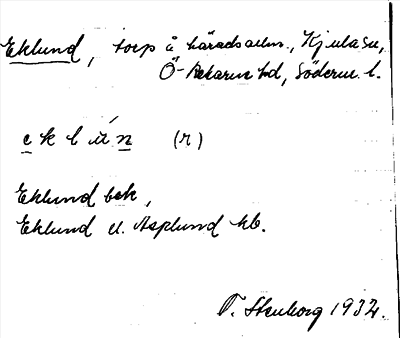 Eklund, torp å häradsallm., Kjulasn,
Ö-Rekarne hd, Söderm. l.
e k l ú n (r)
Eklund bek,
Eklund el. Asplund kb.
T. Stenborg 1932.